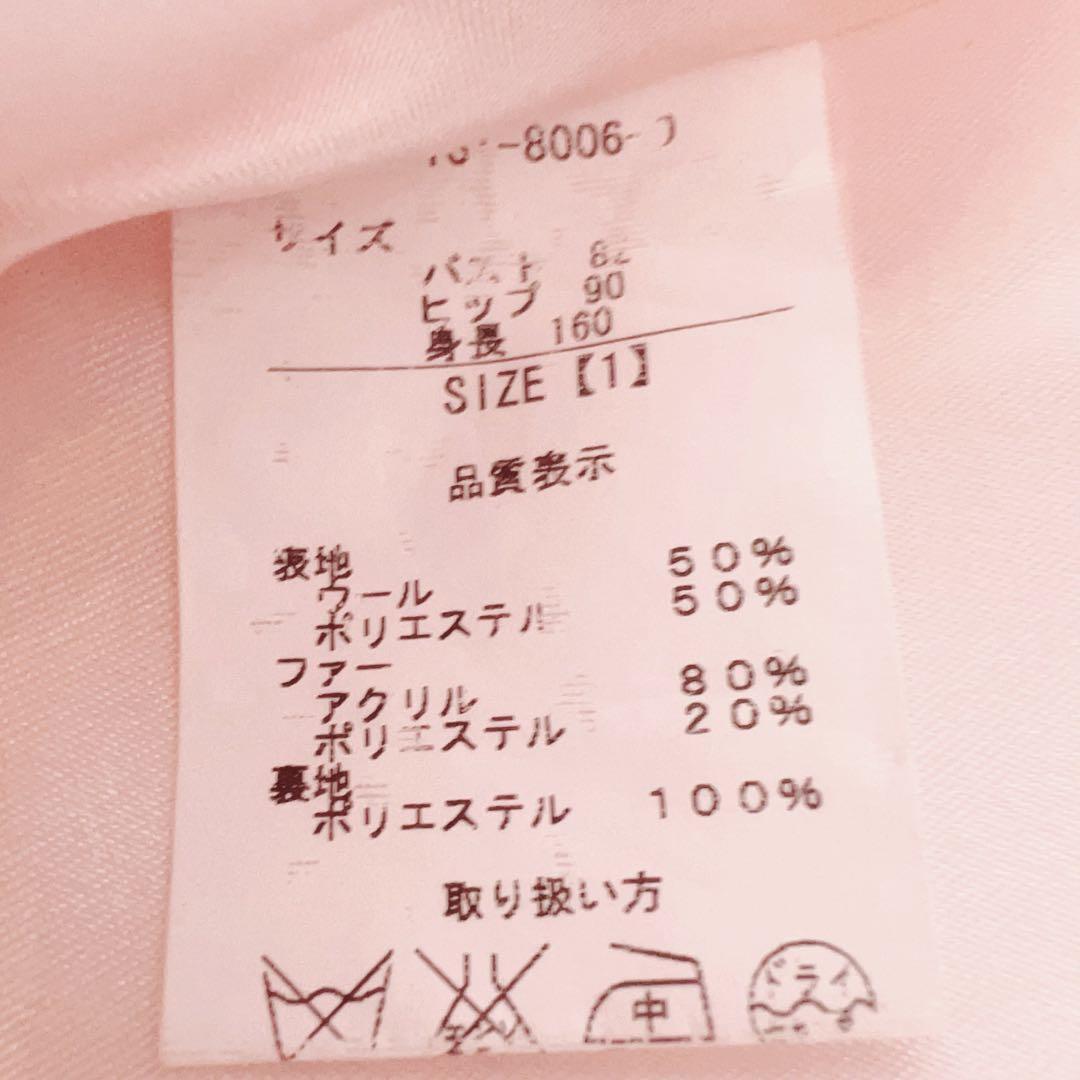 -8006-
サイズ
バスト 82
ヒップ 90
身長 160
SIZE【1】
品質表示
表地
ウール 50%
ポリエステル 50%
ファー
アクリル 80%
ポリエステル 20%
裏地
ポリエステル 100%
取り扱い方
中
ドライ